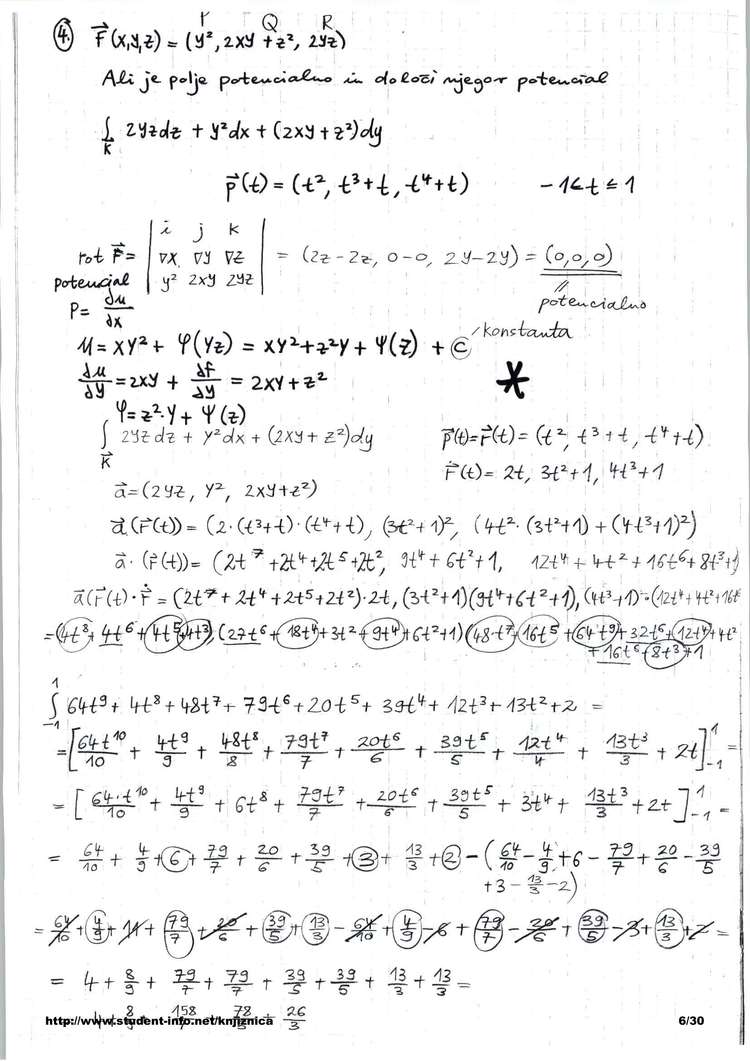 P Q R
④ F⃗(x,y,z) = (y², 2xy + z², 2yz)
Ali je polje potencialno in določi njegov potencial
∫_K 2yzdz + y²dx + (2xy + z²)dy
p⃗(t) = (t², t³+t, t⁴+t) -1≤t≤1
rot F⃗ = | i j k ; ∇x ∇y ∇z ; y² 2xy 2yz | = (2z-2z, 0-0, 2y-2y) = (0,0,0)
potencial
potencialno
P = ∂u/∂x
konstanta
u = xy² + φ(yz) = xy² + z²y + ψ(z) + C
∂u/∂y = 2xy + ∂f/∂y = 2xy + z² *
φ = z²·y + ψ(z)
∫_K⃗ 2yz dz + y²dx + (2xy + z²)dy p⃗(t) = r⃗(t) = (t², t³+t, t⁴+t)
ṙ(t) = 2t, 3t²+1, 4t³+1
a⃗ = (2yz, y², 2xy+z²)
a⃗(r⃗(t)) = (2·(t³+t)·(t⁴+t), (3t²+1)², (4t²·(3t²+1) + (4t³+1)²)
a⃗·(r⃗(t)) = (2t⁷+2t⁴+2t⁵+2t², 9t⁴+6t²+1, 12t⁴+4t²+16t⁶+8t³+1)
a⃗(r⃗(t)·ṙ⃗ = (2t⁷+2t⁴+2t⁵+2t²)·2t, (3t²+1)(9t⁴+6t²+1), (4t³+1)·(12t⁴+4t²+16t⁶
=(4t⁸+4t⁶+4t⁵+4t³), (27t⁶+18t⁴+3t²+9t⁴+6t²+1)(48·t⁷+16t⁵+64t⁹+32t⁶+12t⁴+4t²
+16t⁶+8t³+1
∫_-1^1 64t⁹+4t⁸+48t⁷+79t⁶+20t⁵+39t⁴+12t³+13t²+2 =
= [64t¹⁰/10 + 4t⁹/9 + 48t⁸/8 + 79t⁷/7 + 20t⁶/6 + 39t⁵/5 + 12t⁴/4 + 13t³/3 + 2t]_-1^1 =
= [64·t¹⁰/10 + 4t⁹/9 + 6t⁸ + 79t⁷/7 + 20t⁶/6 + 39t⁵/5 + 3t⁴ + 13t³/3 + 2t]_-1^1 =
= 64/10 + 4/9 + 6 + 79/7 + 20/6 + 39/5 + 3 + 13/3 + 2 - (64/10 - 4/9 + 6 - 79/7 + 20/6 - 39/5
+3 - 13/3 - 2)
= 64/10 + 4/9 + 11 + 79/7 + 20/6 + 39/5 + 13/3 - 64/10 + 4/9 - 6 + 79/7 - 20/6 + 39/5 - 3 + 13/3 + 2 =
= 4 + 8/9 + 79/7 + 79/7 + 39/5 + 39/5 + 13/3 + 13/3 =
4 + 8/9 + 158/7 + 78/5 + 26/3
http://www.student-info.net/knjiznica 6/30